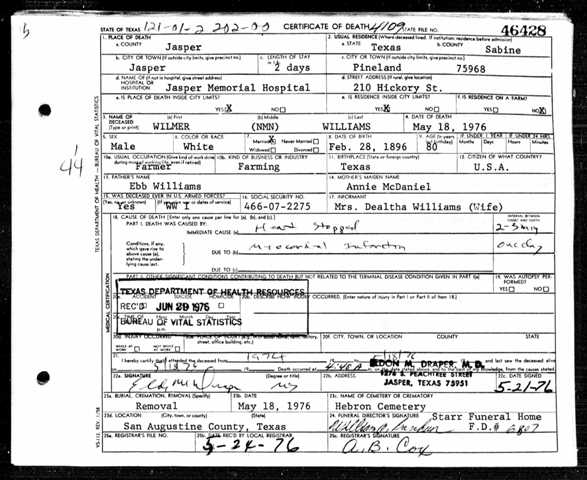 STATE OF TEXAS 121-01-2 202-00 CERTIFICATE OF DEATH 4109 STATE FILE NO. 46428
1. PLACE OF DEATH 2. USUAL RESIDENCE (Where deceased lived. If institution: residence before admission)
a. COUNTY Jasper a. STATE Texas b. COUNTY Sabine
b. CITY OR TOWN (If outside city limits, give precinct no.) c. LENGTH OF STAY c. CITY OR TOWN (If outside city limits, give precinct no.)
Jasper 2 days Pineland 75968
d. NAME OF (If not in hospital, give street address) HOSPITAL OR INSTITUTION d. STREET ADDRESS (If rural, give location)
Jasper Memorial Hospital 210 Hickory St.
e. IS PLACE OF DEATH INSIDE CITY LIMITS? e. IS RESIDENCE INSIDE CITY LIMITS? f. IS RESIDENCE ON A FARM?
YES X NO YES X NO YES NO X
3. NAME OF DECEASED (Type or print) (a) First (b) Middle (c) Last 4. DATE OF DEATH
WILMER (NMN) WILLIAMS May 18, 1976
5. SEX 6. COLOR OR RACE 7. Married X Never Married Widowed Divorced 8. DATE OF BIRTH 9. AGE IF UNDER 1 YEAR IF UNDER 24 HRS.
Male White Feb. 28, 1896 80 Months Days Hours Min.
10a. USUAL OCCUPATION (Give kind of work done 10b. KIND OF BUSINESS OR INDUSTRY 11. BIRTHPLACE (State or foreign country) 12. CITIZEN OF WHAT COUNTRY?
Farmer Farming Texas U.S.A.
13. FATHER'S NAME 14. MOTHER'S MAIDEN NAME
Ebb Williams Annie McDaniel
15. WAS DECEASED EVER IN U.S. ARMED FORCES? 16. SOCIAL SECURITY NO. 17. INFORMANT
Yes WW 466-07-2275 Mrs. Dealtha Williams (Wife)
18. CAUSE OF DEATH (Enter only one cause per line for (a), (b), and (c).)
PART I. DEATH WAS CAUSED BY:
IMMEDIATE CAUSE (a) Heart Stopped 2-3 min
Conditions, if any, which gave rise to above cause (a), stating the underlying cause last.
DUE TO (b) Myocardial Infarction one day
DUE TO (c)
PART II. OTHER SIGNIFICANT CONDITIONS CONTRIBUTING TO DEATH BUT NOT RELATED TO THE TERMINAL DISEASE CONDITION GIVEN IN PART I(a) 19. WAS AUTOPSY PERFORMED?
YES NO
TEXAS DEPARTMENT OF HEALTH RESOURCES
ACCIDENT SUICIDE HOMICIDE 20b. DESCRIBE HOW INJURY OCCURRED. (Enter nature of injury in Part I or Part II of item 18.)
REC'D JUN 1976
BUREAU OF VITAL STATISTICS
20d. INJURY OCCURRED 20f. CITY, TOWN, OR LOCATION COUNTY STATE
WHILE AT WORK NOT WHILE AT WORK
21. I hereby certify that I attended the deceased from 1974
22a. SIGNATURE (Degree or title) 22b. ADDRESS 22c. DATE SIGNED
ELDON M. DRAPER, M.D.
PEACHTREE STREET
JASPER, TEXAS 75951
5-21-76
23a. BURIAL, CREMATION, REMOVAL (Specify) 23b. DATE 23c. NAME OF CEMETERY OR CREMATORY
Removal May 18, 1976 Hebron Cemetery
23d. LOCATION (City, town, or county) (State) 24. FUNERAL DIRECTOR'S SIGNATURE
San Augustine County, Texas Starr Funeral Home
F.D.#
25a. REGISTRAR'S FILE NO. 25b. DATE REC'D BY LOCAL REGISTRAR 25c. REGISTRAR'S SIGNATURE
5-24-76 A.B. Cox
TEXAS DEPARTMENT OF HEALTH — BUREAU OF VITAL STATISTICS
MEDICAL CERTIFICATION